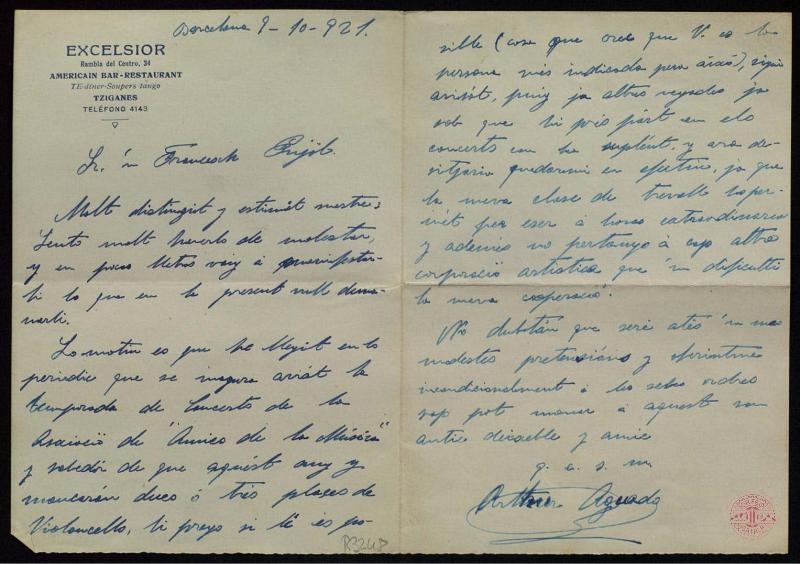 Barcelona 9-10-921.
EXCELSIOR
Rambla del Centro, 34
AMERICAIN BAR-RESTAURANT
TE-diner-Soupers tango
TZIGANES
TELÉFONO 4143
Sr. 'n Francesch Pujól.
Molt distingit y estimat mestre:
Sento molt haverlo de molestar,
y en pocas lletras vaig á manifestar-
li lo que en la present vull dema-
narli.
Lo motiu es que he llegit en lo
periodic que se inagura aviát la
temporada de Concerts de la
Asociació de "Amics de la Música"
y sabedór de que aquést any y
mancarán dues ó trés plases de
Violoncello, li prego si li es po-
sible (cosa que crec que V. es la
persona més indicada pera áixó), sigui
avisát, puig ja altres vegades ja
sab que hi pres párt en els
concerts com ha suplént, y ara de-
sitjaria quedarmi en efectiu, ja que
la meva clase de treball m'oper-
mét per eser á horas extraordinarias
y ademés no pertanyo á cap altra
corporació artistica que 'm dificulti
la meva cooperació.
No dubtán que seré atés 'n mas
modestes pretensións y oferintme
incondicionalment á les seves ordres
sap pot manar á aquest son
antic deixeble y amic
q. e. s. m.
Arthur Aguado
R3248